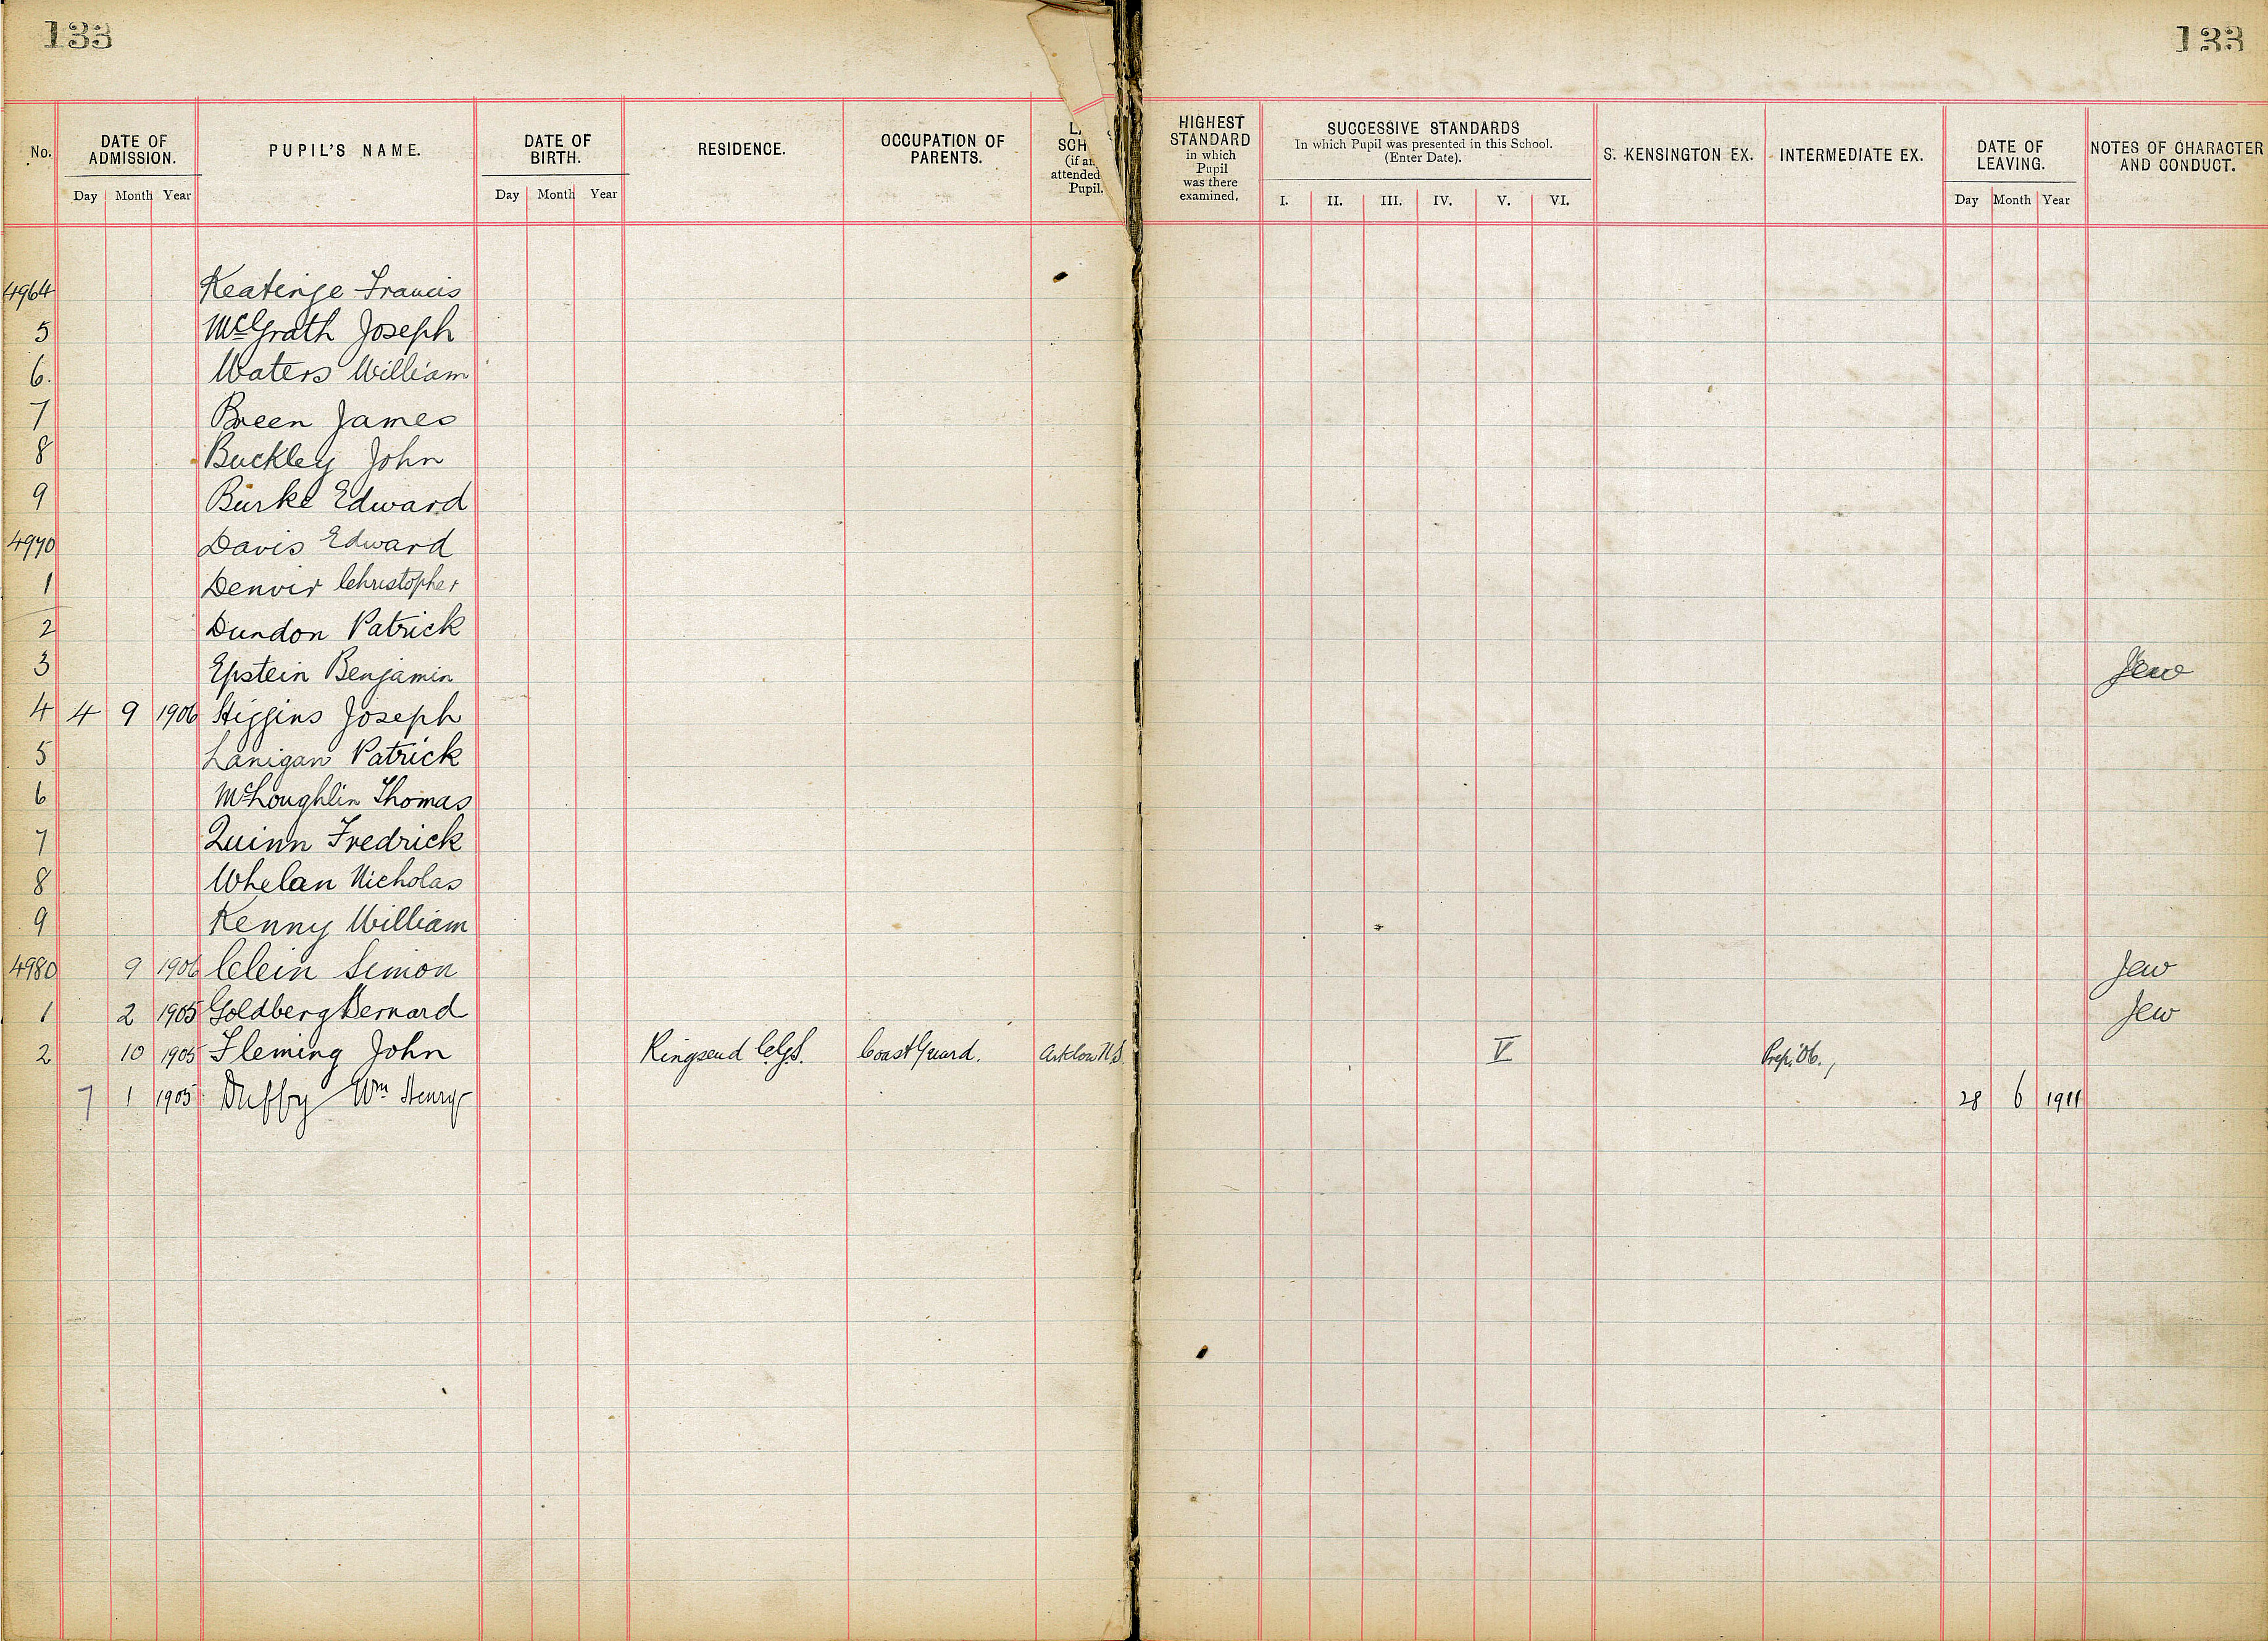 133 133
No. DATE OF ADMISSION. PUPIL'S NAME. DATE OF BIRTH. RESIDENCE. OCCUPATION OF PARENTS. SCH (if an attended Pupil. HIGHEST STANDARD in which Pupil was there examined. SUCCESSIVE STANDARDS In which Pupil was presented in this School. (Enter Date). S. KENSINGTON EX. INTERMEDIATE EX. DATE OF LEAVING. NOTES OF CHARACTER AND CONDUCT.
Day Month Year Day Month Year I. II. III. IV. V. VI. Day Month Year
4964 Keatinge Francis
5 McGrath Joseph
6. Waters William
7 Breen James
8 Buckley John
9 Burke Edward
4970 Davis Edward
1 Denvir Christopher
2 Dundon Patrick
3 Epstein Benjamin Jew
4 4 9 1906 Higgins Joseph
5 Lanigan Patrick
6 McLoughlin Thomas
7 Quinn Fredrick
8 Whelan Nicholas
9 Kenny William
4980 9 1906 Clein Simon Jew
1 2 1905 Goldberg Bernard Jew
2 10 1905 Fleming John Ringsend C.G.S. Coast Guard. Arklow N.S. V
7 1 1905 Duffy Wm Henry 28 6 1911